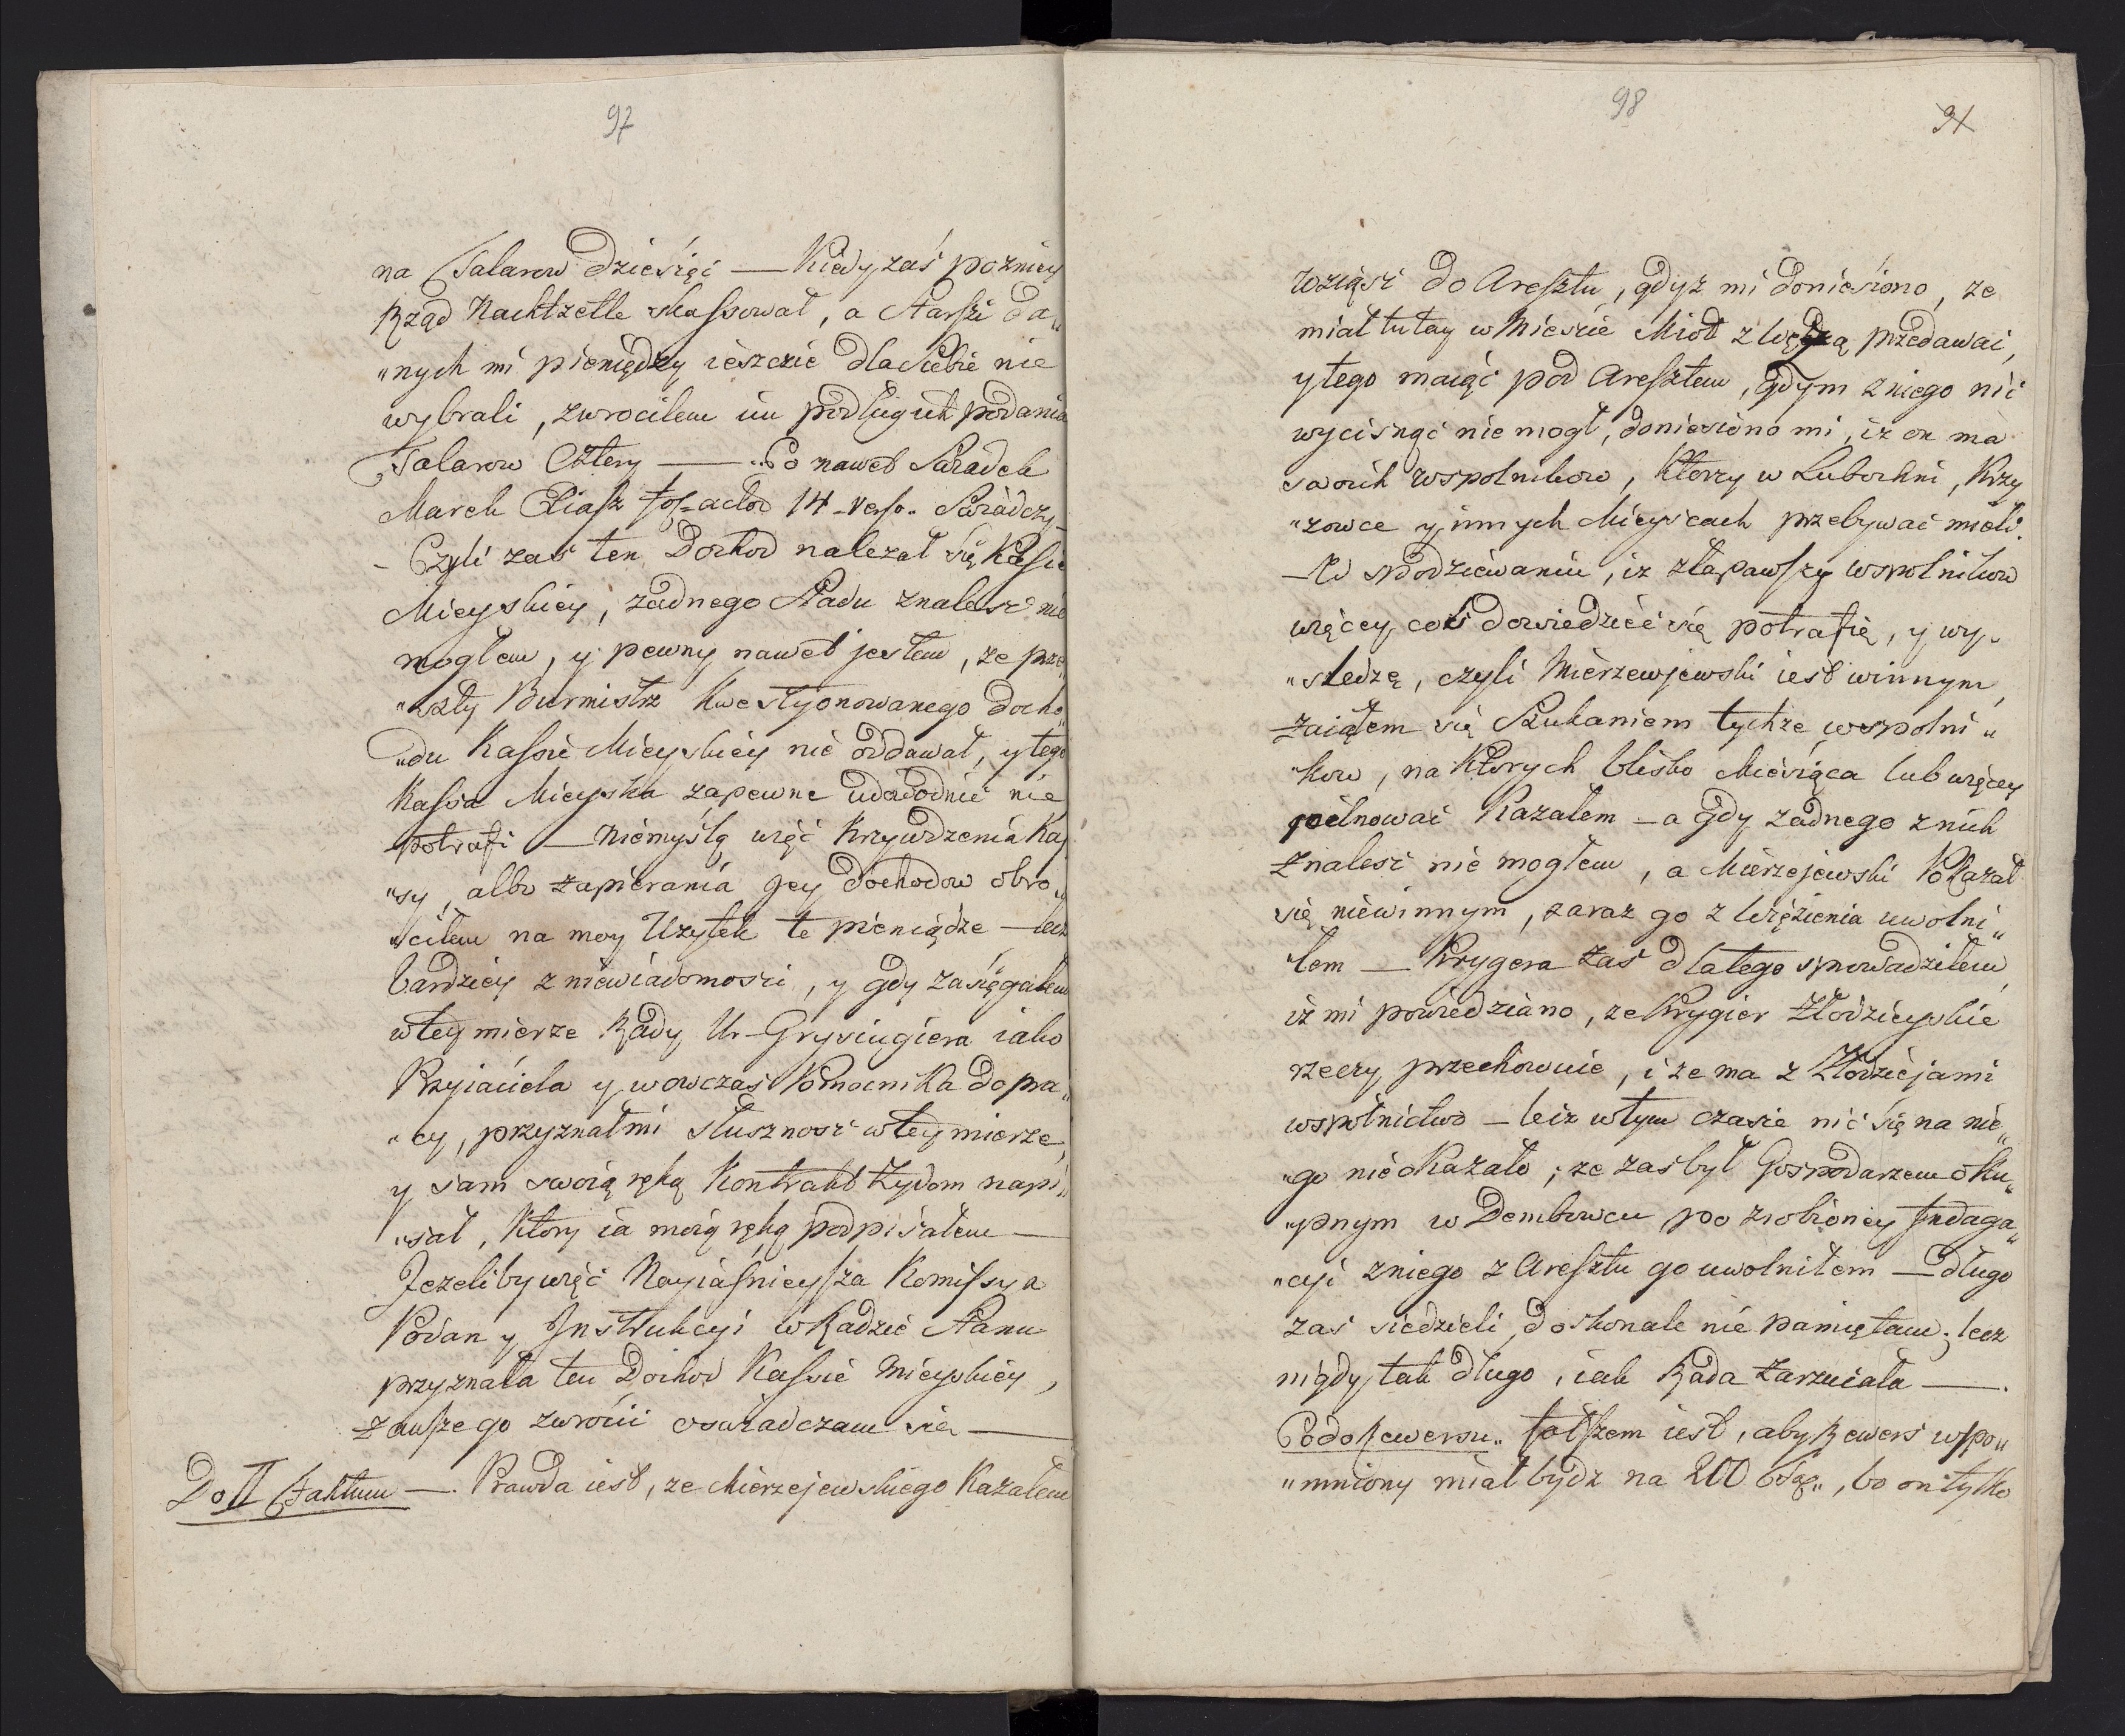 97
na Talarow dziesięć — Kiedy zaś pozniey
Rząd Nachtzetle skassował, a Starsi da„
„nych mi pieniędzy ieszcze dla siebie nie
wybrali, zwrocilem im podług ich podania
Talarow Cztery — „Co nawet Swiadek
Marek Eliasz fol- actor 14 - verso. Swiadczy
- Czyli zas ten Dochod nalezał się Kassie
Mieyskiey, zadnego sladu znalesć nie
mogłem, y pewny nawet jestem, ze prze„
„szły Burmistrz Kwestyonowanego docho„
„du Kassie Mieyskiey nie oddawał, y tego
Kassa Mieyska zapewne udowodnić nie
potrafi — Niemyślą więć Krzywdzenia Kas
„sy, albo zapierania jey dochodow obro„
„ciłem na moy Uzytek te pieniądze — lecz
bardziey z niewiadomosci, y gdy zasięgałem
w tey mierze Rady Ur- Grysingiera iako
Przyiaciela y wowczas Pomocnika do pra„
„cy, przyznał mi słusznosc w tey mierze,
y sam swoią ręką Kontrakt Zydom napi„
„sał, Ktory ia moią ręką podpisałem —
Jezeliby więć Nayiaśnieysza Komissya
Podan y Instrukcyi w Radzie Stanu
przyznała ten Dochod Kassie Mieyskiey,
zawsze go zwrócić oswiadczam się —
Do II Faktum —. Prawda iest, ze Mierzejewskiego Kazałem
98
31
wziąsć do Aresztu, gdyz mi doniesiono, ze
miał tutay w Miescie Miod z Wędzą przedawać,
y tego maiąć pod Aresztem, gdym z niego nić
wycisnąć nie mogł, doniesiono mi, iz on ma
swoich wspolnikow, Ktorzy w Lubochni, Krzy
„zowce y innych Mieyscach przebywać mieli.
— W spodziewaniu, iz złapawszy wspolnikow
więcey coś dowiedzieć się potrafię, y wy„
„sledzę, czyli Mierzewjewski iest winnym,
zaiąłem się Szukaniem tychze wspolni„
„kow, na Ktorych blisko Miesiąca lub więcey
pilnować Kazałem — a gdy zadnego z nich
znalesć nie mogłem, a Mierzejewski Pokazał
się niewinnym, zaraz go z Więzienia uwolni„
„łem — Krygera zas dlatego sprowadziłem,
iż mi powiedziano, ze Krygier Złodzieyskie
rzeczy przechowuie, i ze ma z Złodziejami
wspołnictwo — lecz w tym czasie nić się na nie„
„go nieokazało; ze zas był Gospodarzem oku„
„pnym w Dembowcu po zrobioney Indaga„
„cyi z niego z Aresztu go uwolniłem — Długo
zas siedzieli doskonale nie pamiętam; lecz
nigdy tak długo, iak Rada Zarzuciała —.
Co do Rewersu„ fałszem iest, aby Rewers wspo„
„mniony miał bydz na 200 , bo on tylko